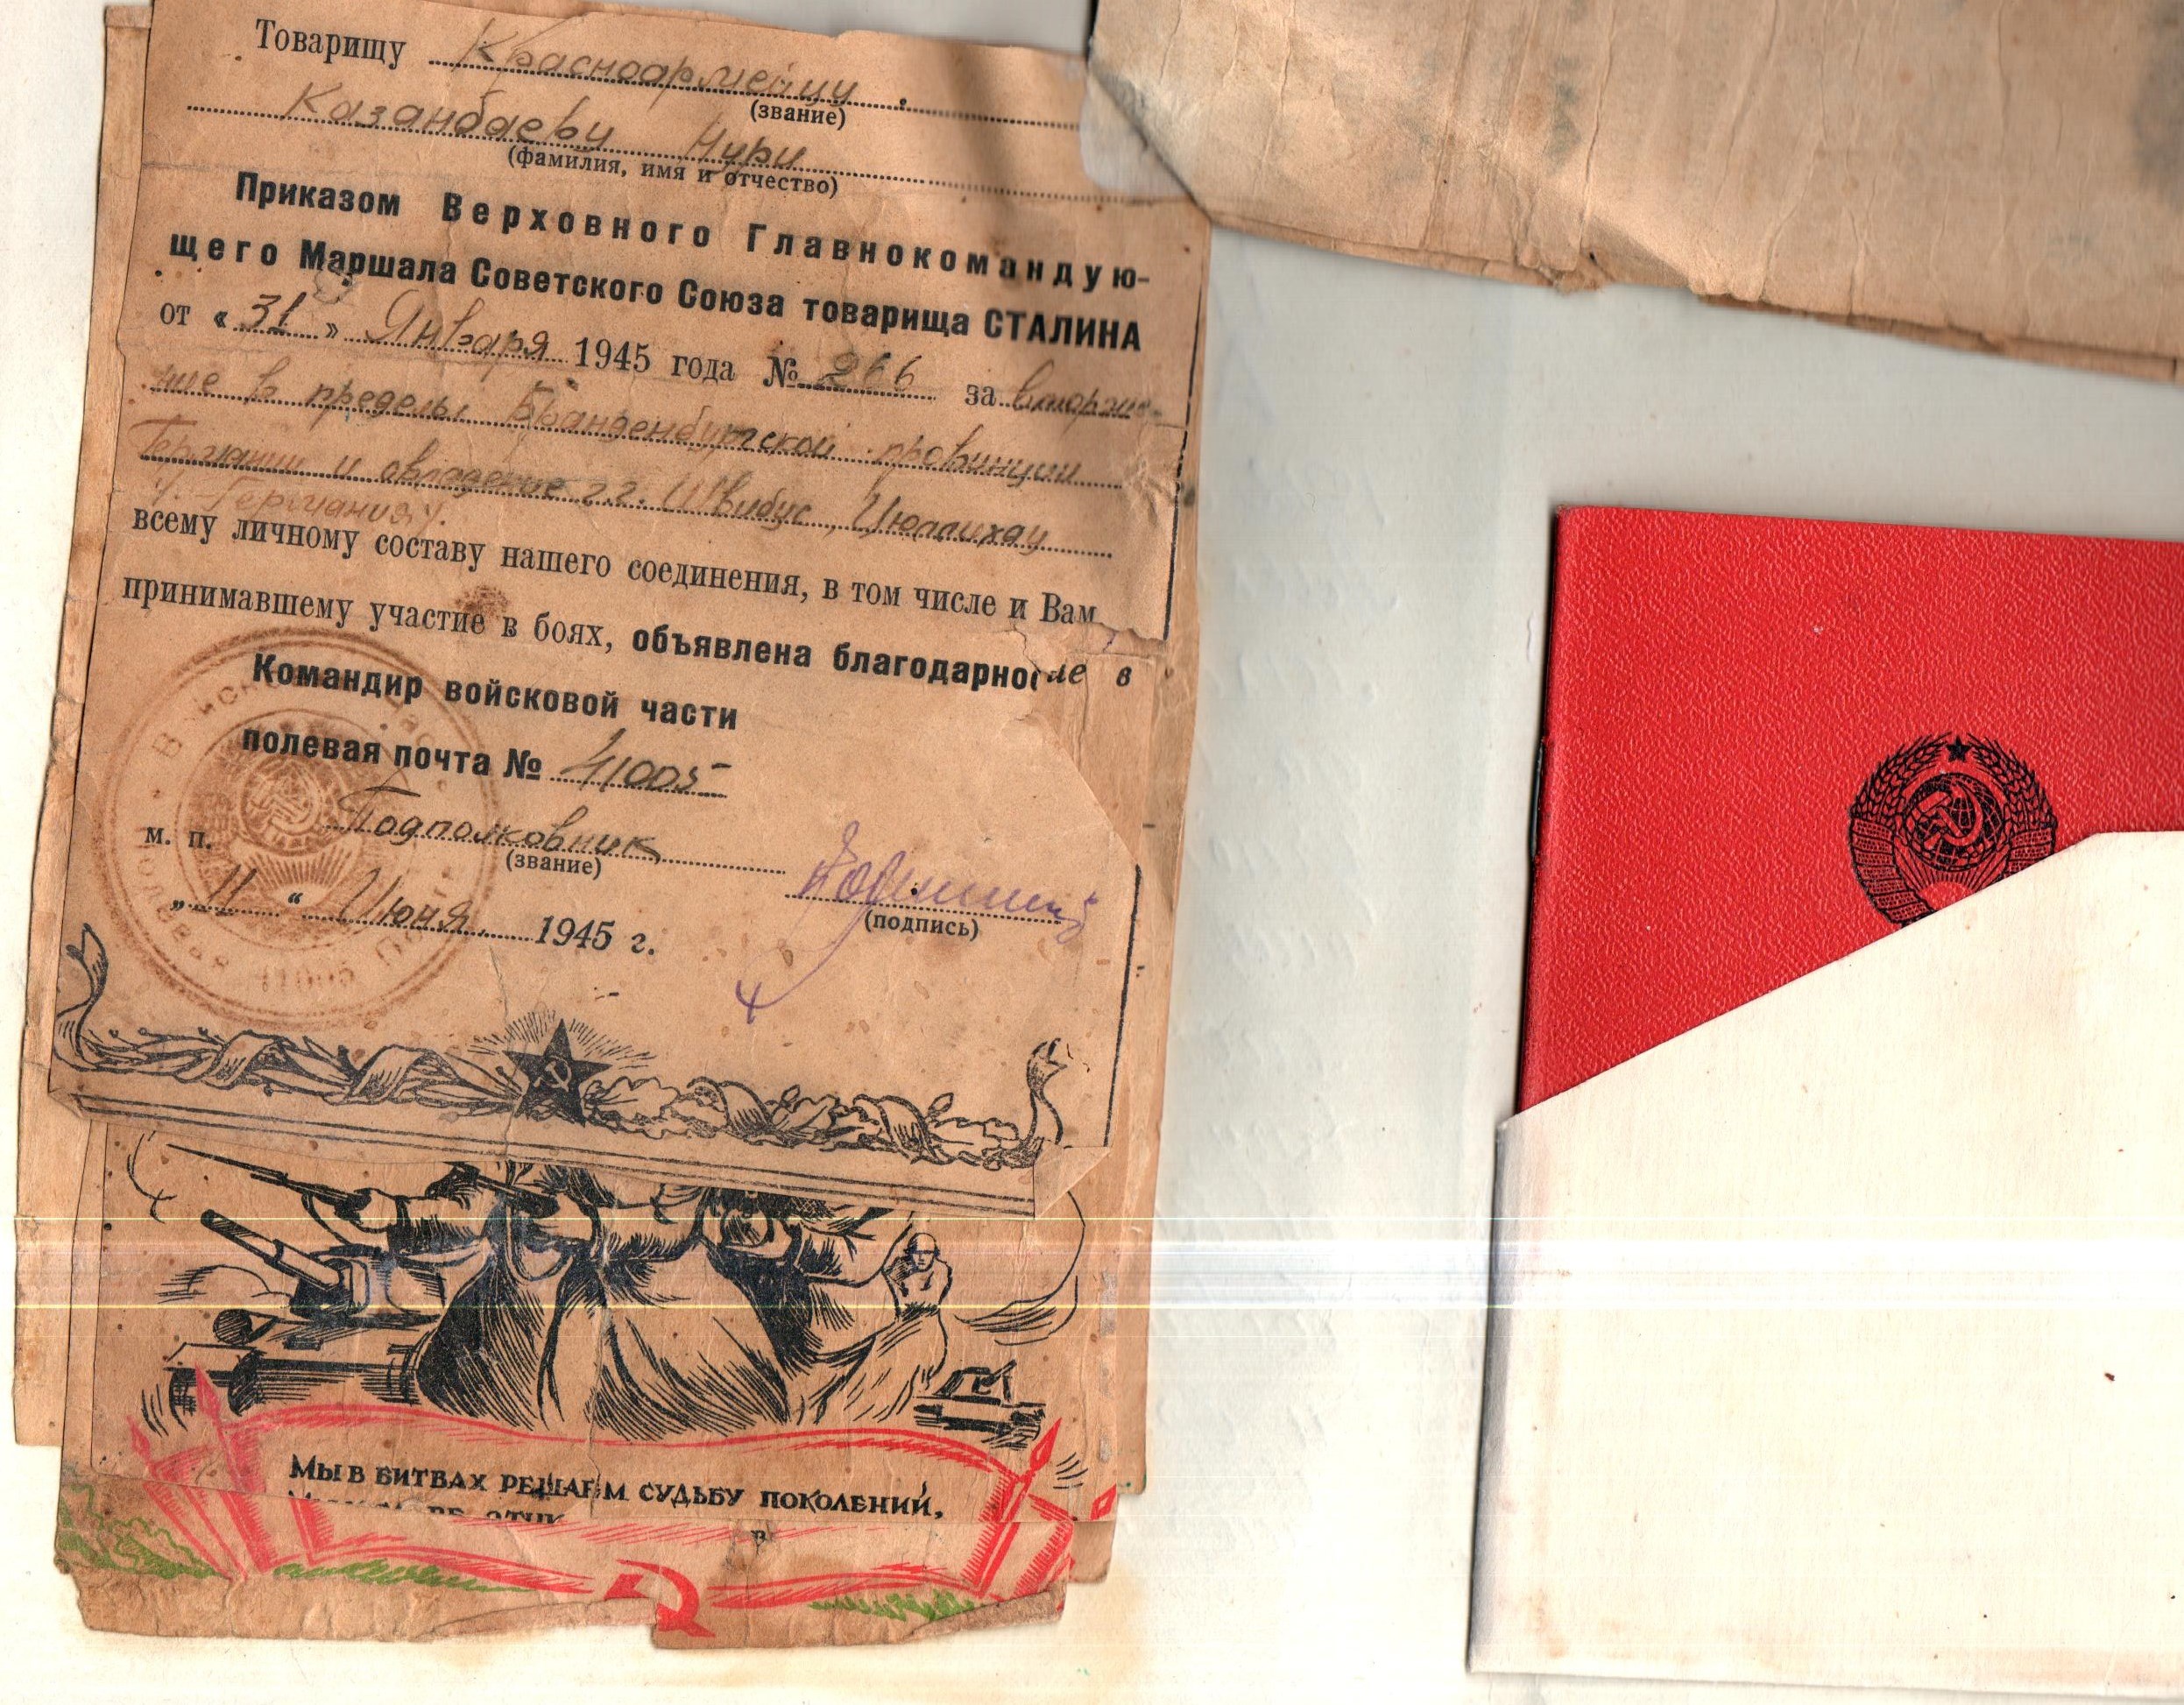 Товарищу Красноармейцу
(звание)
Казанбаеву Нури
(фамилия, имя и отчество)
Приказом Верховного Главнокомандую-
щего Маршала Советского Союза товарища СТАЛИНА
от « 31 » Января 1945 года № 266 за вторже-
ние в пределы Бранденбургской провинции
Германии и овладение г.г. Швибус,
(Германия).
всему личному составу нашего соединения, в том числе и Вам,
принимавшему участие в боях, объявлена благодарно
ие в
Командир войсковой части
полевая почта № 41005
Подполковник
м. п.
(звание)
(подпись)
„ 11 “ Июня 1945 г.
МЫ В БИТВАХ РЕШАЕМ СУДЬБУ ПОКОЛЕНИЙ,